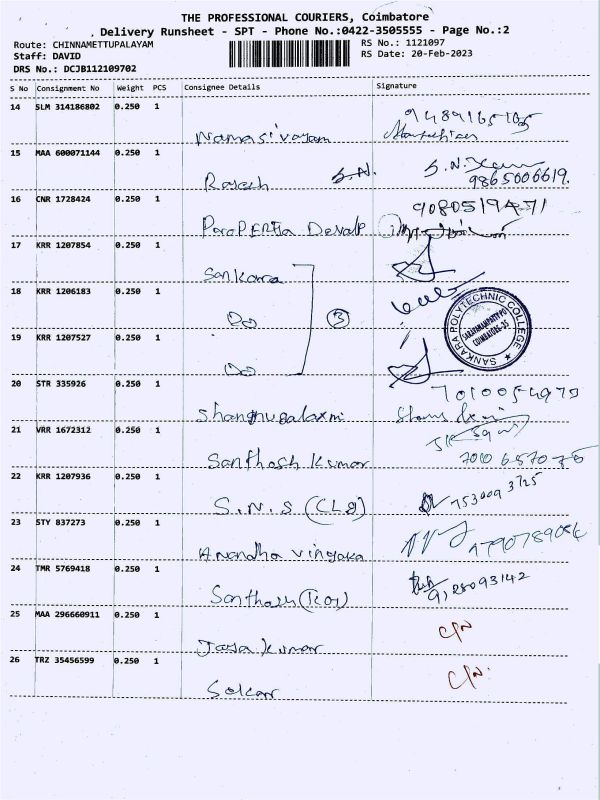 THE PROFESSIONAL COURIERS, Coimbatore
Delivery Runsheet - SPT - Phone No.:0422-3505555 - Page No.:2
Route: CHINNAMETTUPALAYAM RS No.: 1121097
Staff: DAVID RS Date: 20-Feb-2023
DRS No.: DCJB112109702
S No Consignment No Weight PCS Consignee Details Signature
14 SLM 314186802 0.250 1
Namasivayam
15 MAA 600071144 0.250 1
Rajesh S.N. S.N.
9865006619.
16 CNR 1728424 0.250 1 9080519471
17 KRR 1207854 0.250 1
Sankara
18 KRR 1206183 0.250 1
Do 3
SANKARA POLYTECHNIC COLLEGE
SARAVANAMPATTY PO
COIMBATORE-35
19 KRR 1207527 0.250 1
Do
20 STR 335926 0.250 1
Shanmugalaxmi
21 VRR 1672312 0.250 1
Santhosh Kumar
22 KRR 1207936 0.250 1
S.N.S (CLG) 753009 3725
23 STY 837273 0.250 1
Anandha Vinyaka
24 TMR 5769418 0.250 1
Santhosh
25 MAA 296660911 0.250 1
Jaya Kumar C/N
26 TRZ 35456599 0.250 1
C/N.